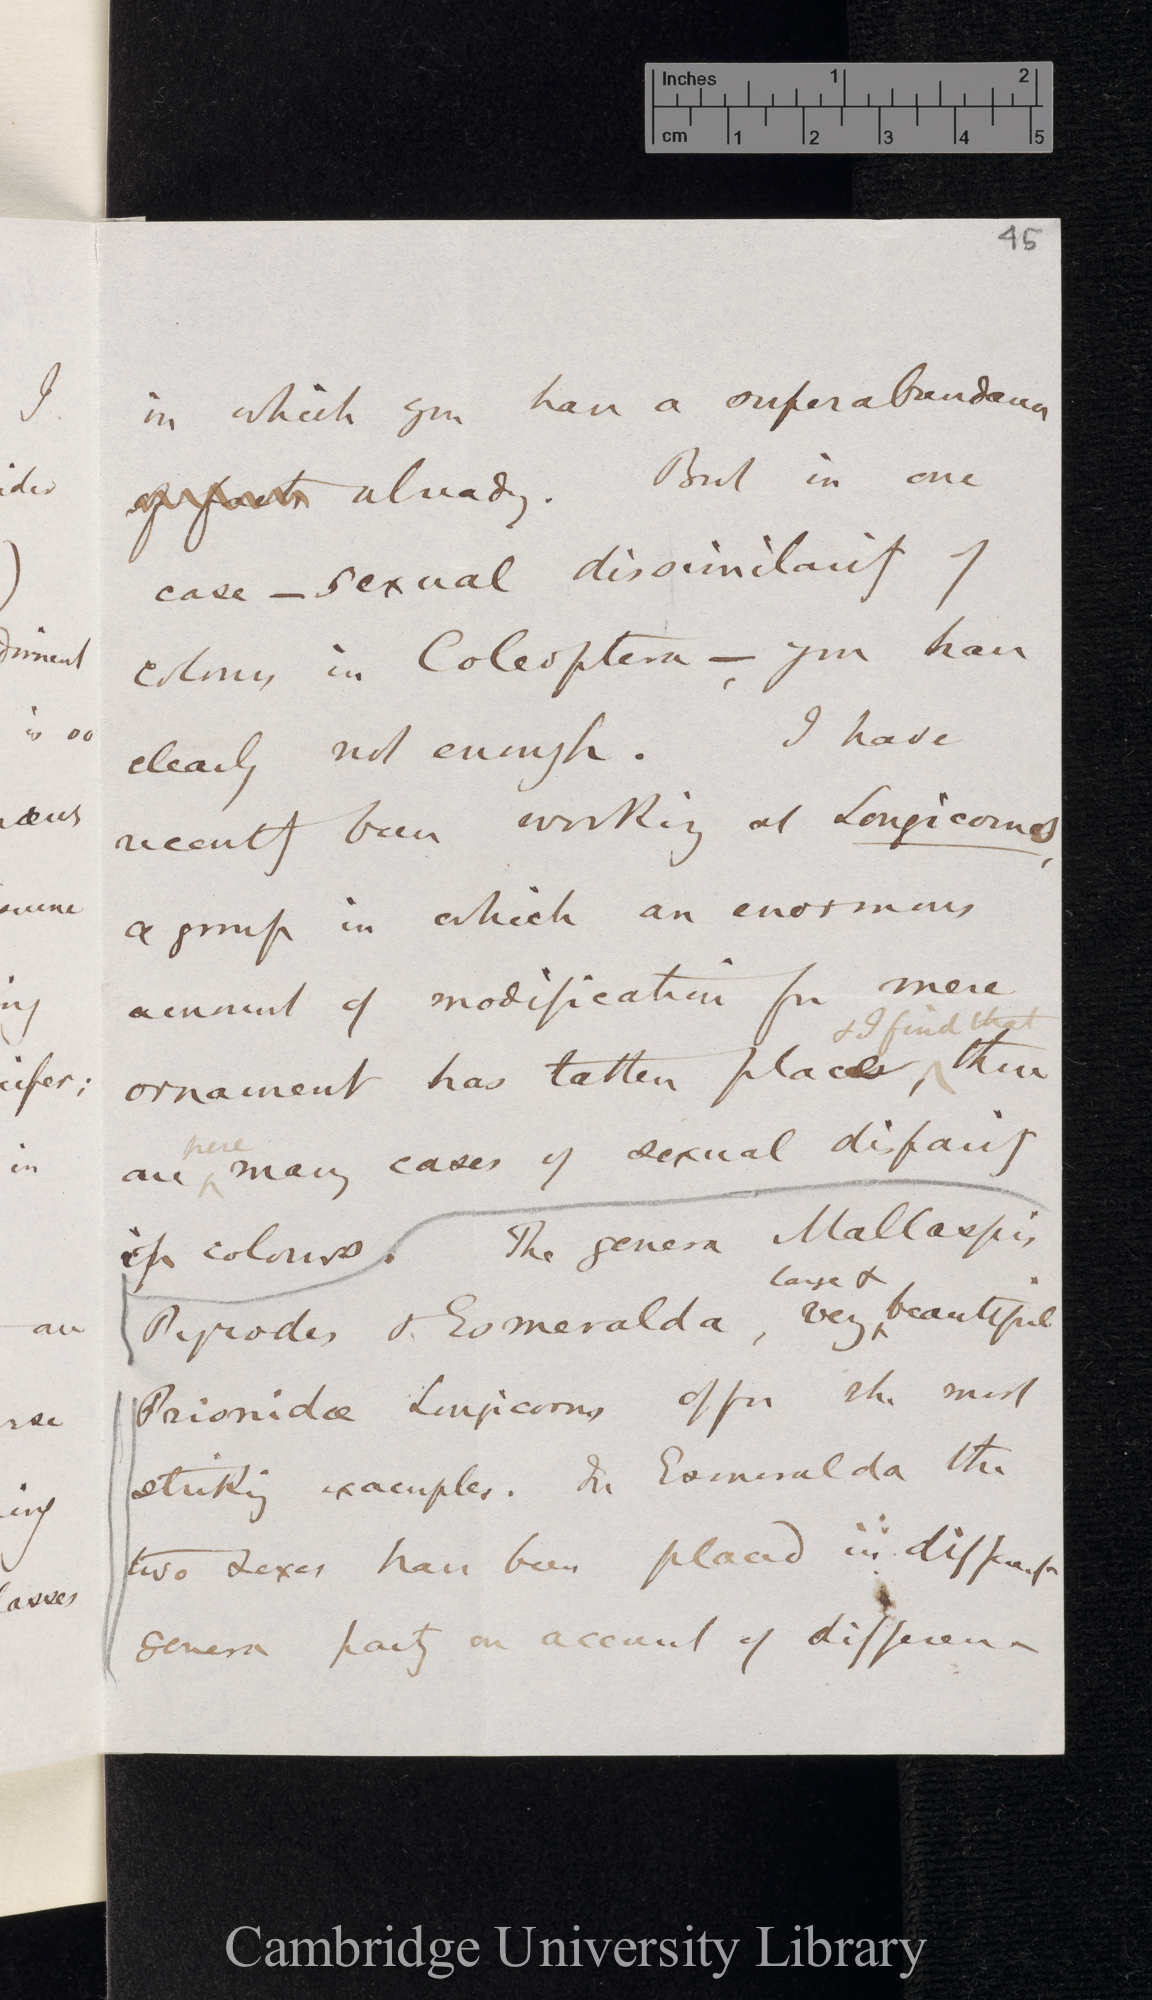 Inches 1 2
cm 1 2 3 4 5
45
in which you have a superabundance
of facts already. But in one
case — sexual dissimilarity of
colours in Coleoptera —, you have
clearly not enough. I have
recently been working at Longicornes,
a group in which an enormous
amount of modification for mere
& I find that
ornament has taken place, there
here
are many cases of sexual disparity
in colours. The genera Mallaspis
large &
Pyrodes & Esmeralda, very beautiful
Prionidæ Longicorns offer the most
striking examples. In Esmeralda the
two sexes have been placed in different
genera partly on account of difference
I
)
is so
in
Cambridge University Library